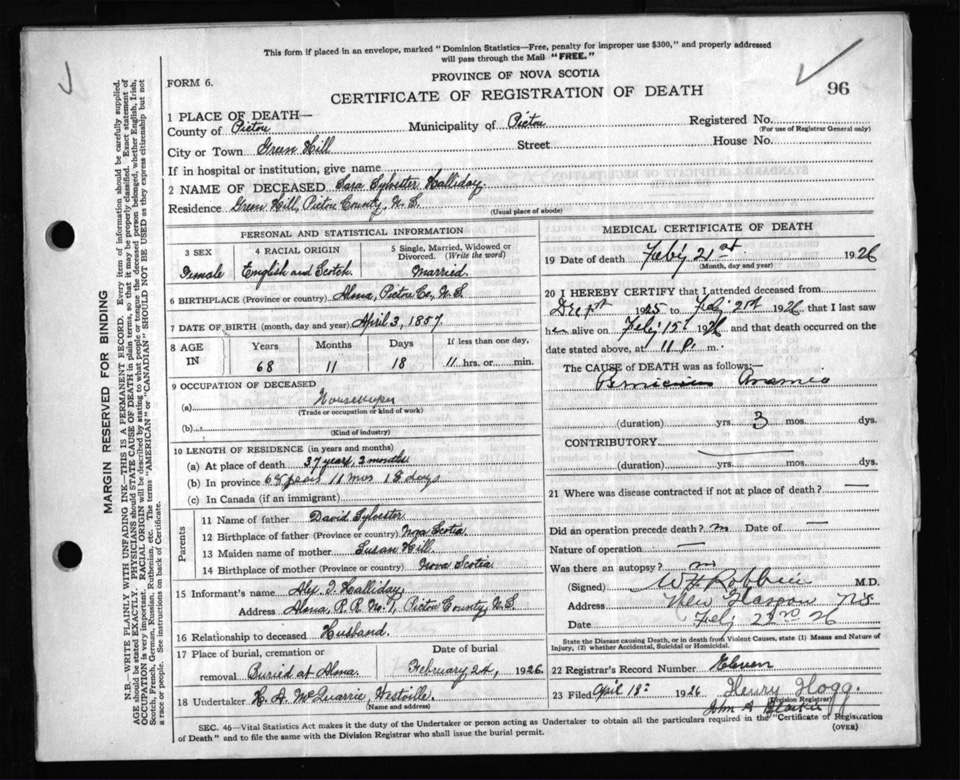 This form if placed in an envelope, marked "Dominion Statistics—Free, penalty for improper use $300," and properly addressed
will pass through the Mail "FREE."
PROVINCE OF NOVA SCOTIA
FORM 6.
CERTIFICATE OF REGISTRATION OF DEATH
96
1 PLACE OF DEATH—
County of Pictou Municipality of Pictou Registered No.
(For use of Registrar General only)
City or Town Green Hill Street House No.
If in hospital or institution, give name
2 NAME OF DECEASED Sara Sylvester Halliday
Residence Green Hill, Pictou County, N.S.
(Usual place of abode)
PERSONAL AND STATISTICAL INFORMATION
3 SEX
Female
4 RACIAL ORIGIN
English and Scotch
5 Single, Married, Widowed or
Divorced. (Write the word)
Married.
6 BIRTHPLACE (Province or country) Alma, Pictou Co., N.S.
7 DATE OF BIRTH (month, day and year) April 3, 1857.
8 AGE
IN
Years
68
Months
11
Days
18
If less than one day,
11 hrs. or min.
9 OCCUPATION OF DECEASED
(a) Housekeeper
(Trade or occupation or kind of work)
(b)
(Kind of industry)
10 LENGTH OF RESIDENCE (in years and months)
(a) At place of death 37 years, 2 months
(b) In province 68 years 11 mos 18 days
(c) In Canada (if an immigrant)
Parents
11 Name of father David Sylvester
12 Birthplace of father (Province or country) Nova Scotia
13 Maiden name of mother Susan Hill
14 Birthplace of mother (Province or country) Nova Scotia
15 Informant's name Alex. T. Halliday
Address Alma, R.R. No. 1, Pictou County, N.S.
16 Relationship to deceased Husband.
17 Place of burial, cremation or
removal Buried at Alma.
Date of burial
February 24, 1926.
18 Undertaker H. A. McQuarrie, Westville.
(Name and address)
MEDICAL CERTIFICATE OF DEATH
19 Date of death Feb'y 21st 1926
(Month, day and year)
20 I HEREBY CERTIFY that I attended deceased from
1925 to Feb'y 21st 1926, that I last saw
her alive on Feb'y 15 1926 and that death occurred on the
date stated above, at 11 P. m.
The CAUSE of DEATH was as follows:—
Pernicious Anamea
(duration) yrs. 3 mos. dys.
CONTRIBUTORY
(duration) yrs. mos. dys.
21 Where was disease contracted if not at place of death? —
Did an operation precede death? no Date of —
Nature of operation —
Was there an autopsy? no
(Signed) M.D.
Address New Glasgow N.S.
Date Feb 23rd 26
State the Disease causing Death, or in death from Violent Causes, state (1) Means and Nature of
Injury, (2) whether Accidental, Suicidal or Homicidal.
22 Registrar's Record Number Eleven
23 Filed April 18 1926 Henry Hogg.
(Division Registrar)
John A
SEC. 46—Vital Statistics Act makes it the duty of the Undertaker or person acting as Undertaker to obtain all the particulars required in the "Certificate of Registration
of Death" and to file the same with the Division Registrar who shall issue the burial permit.
(OVER)
MARGIN RESERVED FOR BINDING
N.B.—WRITE PLAINLY WITH UNFADING INK—THIS IS A PERMANENT RECORD. Every item of information should be carefully supplied.
AGE should be stated EXACTLY. PHYSICIANS should STATE CAUSE OF DEATH in plain terms, so that it may be properly classified. Exact statement of
OCCUPATION is very important. RACIAL ORIGIN will be described by stating to what people or tongue the deceased person belonged, whether English, Irish,
Scotch, French, German, Russian, Ruthenian, etc. The terms "AMERICAN" or "CANADIAN" SHOULD NOT BE USED as they express citizenship but not
a race or people. See instructions on back of Certificate.